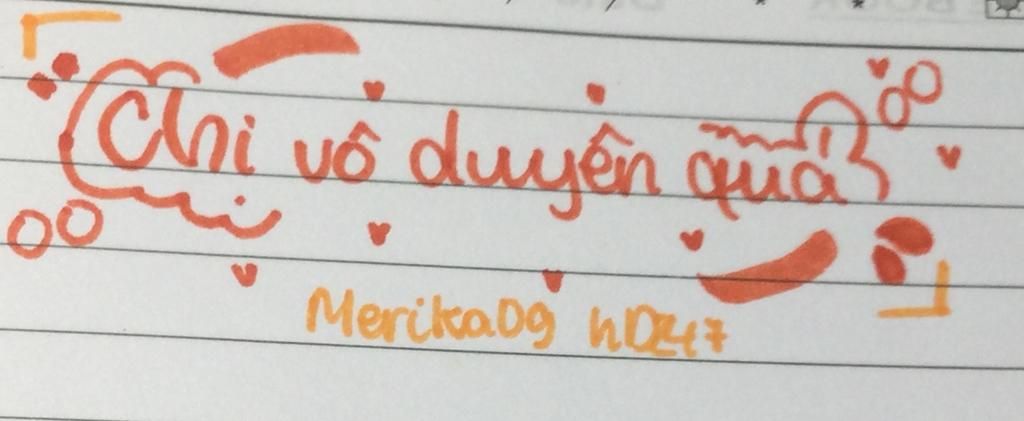 Chi vô duyên quá
Merika09 hD247